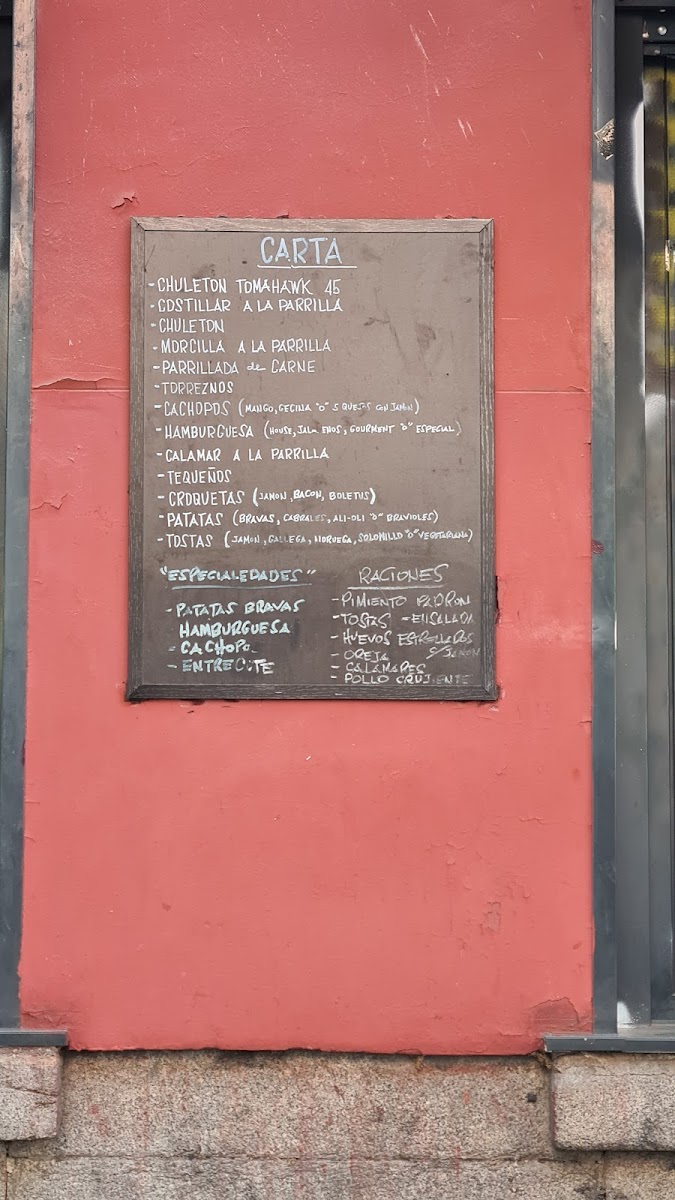 CARTA
-CHULETON TOMAHAWK 45
-COSTILLAR A LA PARRILLA
-CHULETON
-MORCILLA A LA PARRILLA
-PARRILLADA de CARNE
-TORREZNOS
-CACHOPOS (MANGO, CECINA "O" 5 QUESOS CON JAMON)
-HAMBURGUESA (HOUSE, JALAPENOS, GOURMENT "O" ESPECIAL)
-CALAMAR A LA PARRILLA
-TEQUEÑOS
-CROQUETAS (JAMON, BACON, BOLETUS)
-PATATAS (BRAVAS, CABRALES, ALI-OLI "O" BRAVIOLES)
-TOSTAS (JAMON, GALLEGA, NORUEGA, SOLOMILLO "O" VEGETARIANA)
"ESPECIALEDADES"
-PATATAS BRAVAS
HAMBURGUESA
-CACHOPO
-ENTRECOTE
RACIONES
-PIMIENTO PADRON
-TOSTAS -ENSALADA
-HUEVOS ESTRELLADOS
-OREJA JAMON
-CALAMARES
-POLLO CRUJIENTE